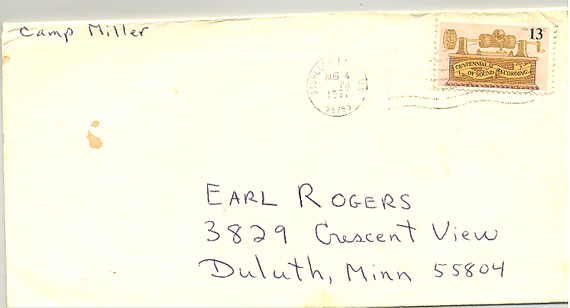 Camp Miller
USA 13
CENTENNIAL
OF SOUND RECORDING
AUG 4
PM
1977
55783
EARL ROGERS
3829 Crescent View
Duluth, Minn 55804